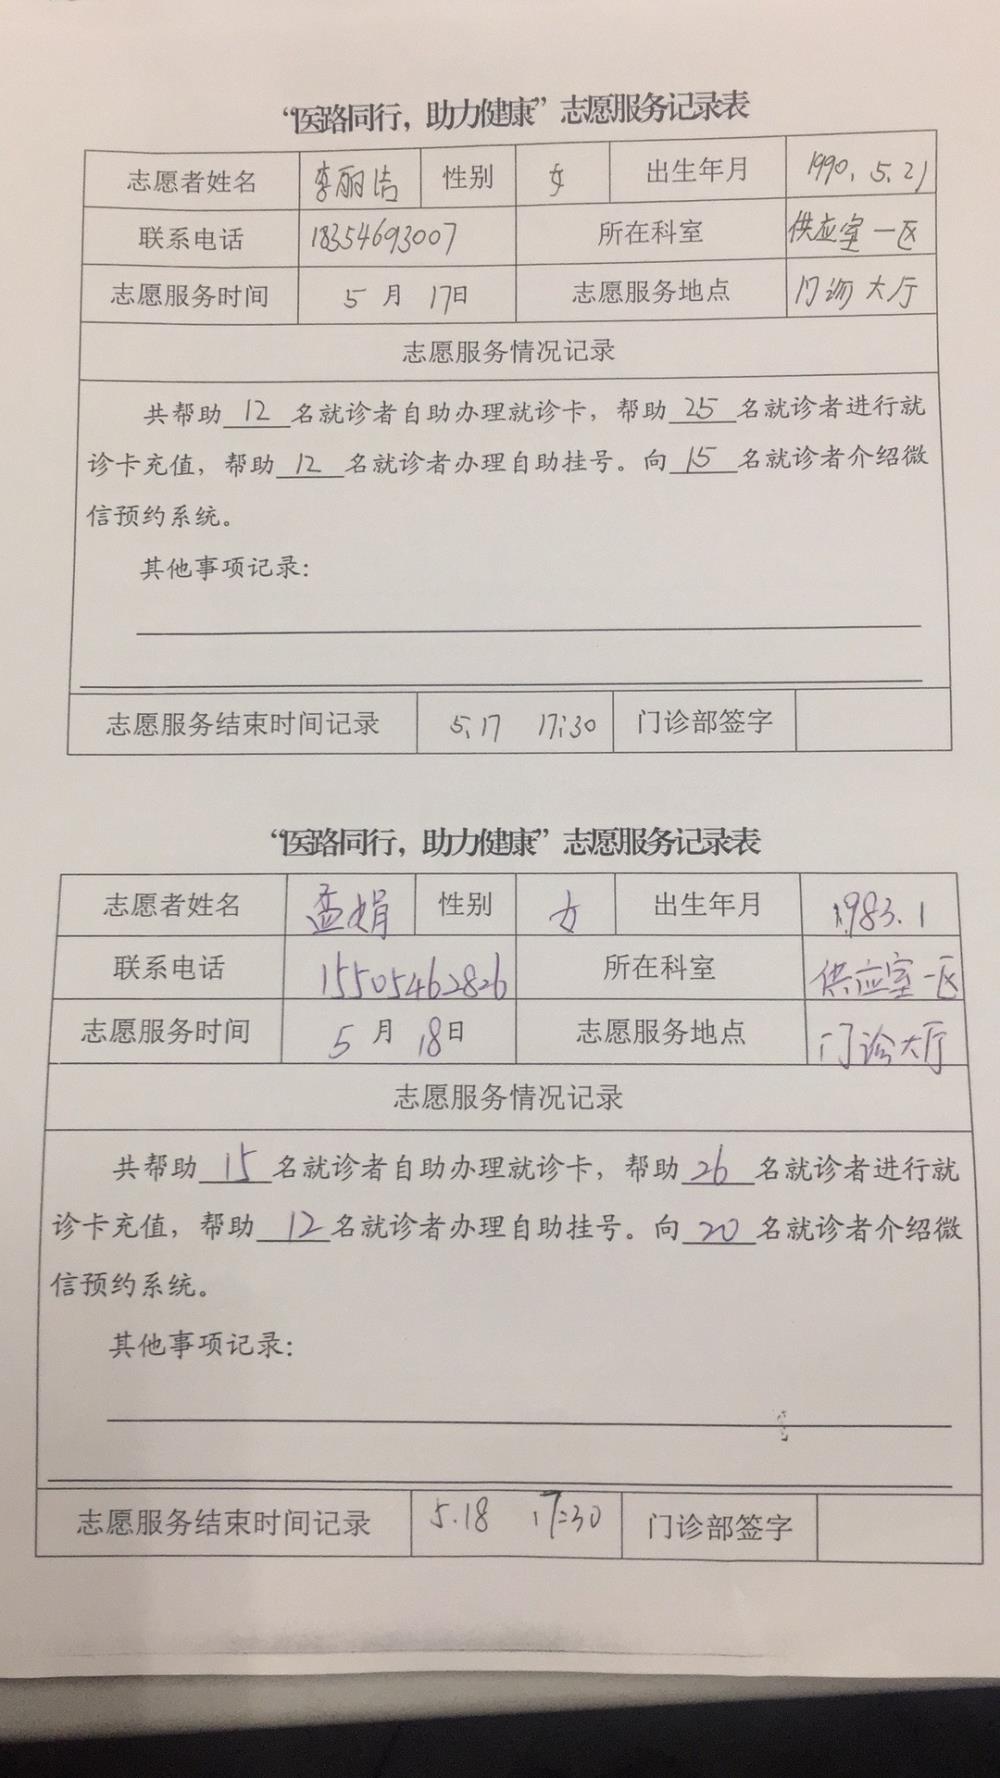 “医路同行，助力健康”志愿服务记录表
志愿者姓名 李丽洁 性别 女 出生年月 1990.5.21
联系电话 18354693007 所在科室 供应室一区
志愿服务时间 5月17日 志愿服务地点 门诊大厅
志愿服务情况记录
共帮助12名就诊者自助办理就诊卡，帮助25名就诊者进行就
诊卡充值，帮助12名就诊者办理自助挂号。向15名就诊者介绍微
信预约系统。
其他事项记录：
志愿服务结束时间记录 5.17 17:30 门诊部签字
“医路同行，助力健康”志愿服务记录表
志愿者姓名 孟娟 性别 女 出生年月 1983.1
联系电话 15505462826 所在科室 供应室一区
志愿服务时间 5月18日 志愿服务地点 门诊大厅
志愿服务情况记录
共帮助15名就诊者自助办理就诊卡，帮助26名就诊者进行就
诊卡充值，帮助12名就诊者办理自助挂号。向20名就诊者介绍微
信预约系统。
其他事项记录：
志愿服务结束时间记录 5.18 17:30 门诊部签字